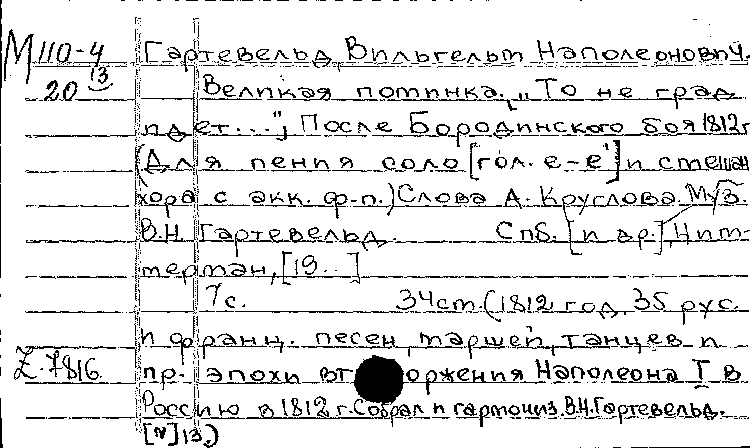 М 110-4 Гартевельд, Вильгельм Наполеонович.
20 13 Великая поминка. "То не град
идет..."; После Бородинского боя 1812 г
(Для пения соло [гол. e-e'] и смешан
хора с акк. ф-п.) Слова А. Круглова. Муз.
В.Н. Гартевельд. Спб. [и др.], Цим-
мерман, [19...]
7 с. 34 см. (1812 год. 35 рус.
и франц. песен, маршей, танцев и
Z-7816. пр. эпохи вторжения Наполеона I в
Россию в 1812 г. Собрал и гармониз. В.Н. Гартевельд.
[№] 13.)